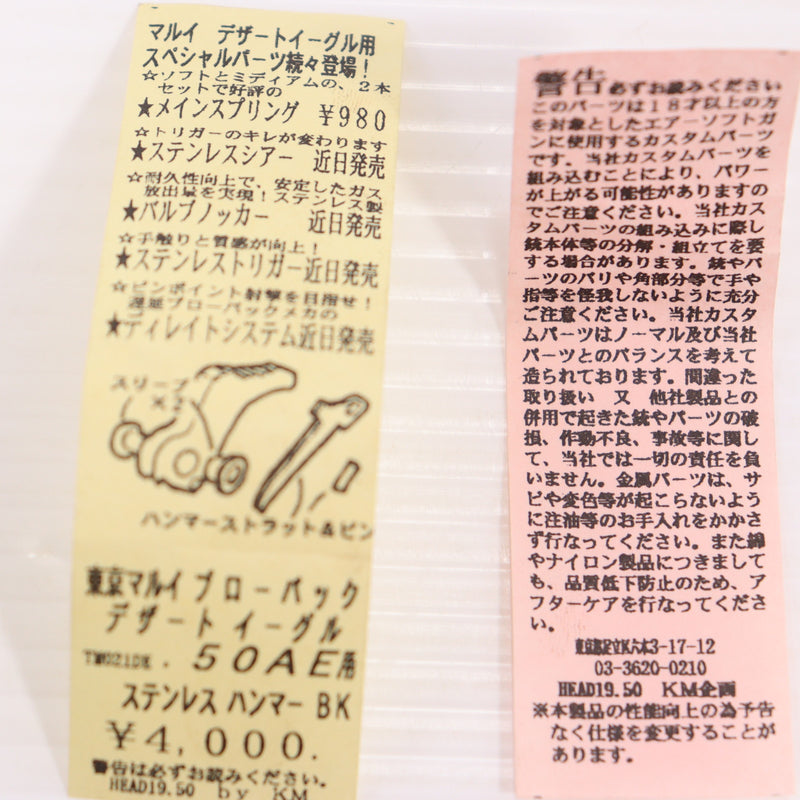 マルイ デザートイーグル用
スペシャルパーツ続々登場！
☆ソフトとミディアムの、2本
セットで好評の
★メインスプリング ￥980
☆トリガーのキレが変わります
★ステンレスシアー 近日発売
☆耐久性向上で、安定したガス
放出量を実現！ステンレス製
★バルブノッカー 近日発売
☆手触りと質感が向上！
★ステンレストリガー近日発売
☆ピンポイント射撃を目指せ！
遅延ブローバックメカの
★ディレイトシステム近日発売
スリーブ
×2
ハンマーストラット&ピン
東京マルイ ブローバック
デザート イーグル
TM021DE. 50AE用
ステンレス ハンマー BK
￥4,000.
警告は必ずお読みください。
HEAD19.50 by KM
警告必ずお読みください
このパーツは18才以上の方
を対象としたエアーソフトガ
ンに使用するカスタムパーツ
です。当社カスタムパーツを
組み込むことにより、パワー
が上がる可能性がありますの
でご注意ください。当社カス
タムパーツの組み込みに際し
銃本体等の分解・組立てを要
する場合があります。銃やパ
ーツのバリや角部分等で手や
指等を怪我しないように充分
ご注意ください。当社カスタ
ムパーツはノーマル及び当社
パーツとのバランスを考えて
造られております。間違った
取り扱い 又 他社製品との
併用で起きた銃やパーツの破
損、作動不良、事故等に関し
て、当社では一切の責任を負
いません。金属パーツは、サ
ビや変色等が起こらないよう
に注油等のお手入れをかかさ
ず行なってください。また綿
やナイロン製品につきまして
も、品質低下防止のため、ア
フターケアを行なってくださ
い。
東京都足立区六木3-17-12
03-3620-0210
HEAD19.50 KM企画
※本製品の性能向上の為予告
なく仕様を変更することが
あります。